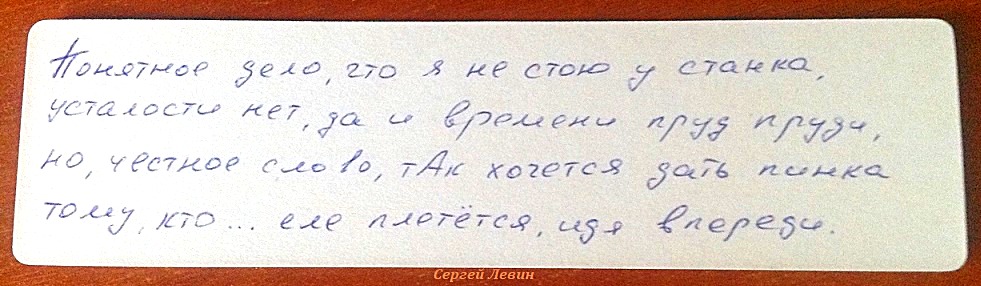 Понятное дело, что я не стою у станка,
усталости нет, да и времени пруд пруди,
но, честное слово, тАк хочется дать пинка
тому, кто... еле плетётся, идя впереди.
Сергей Левин